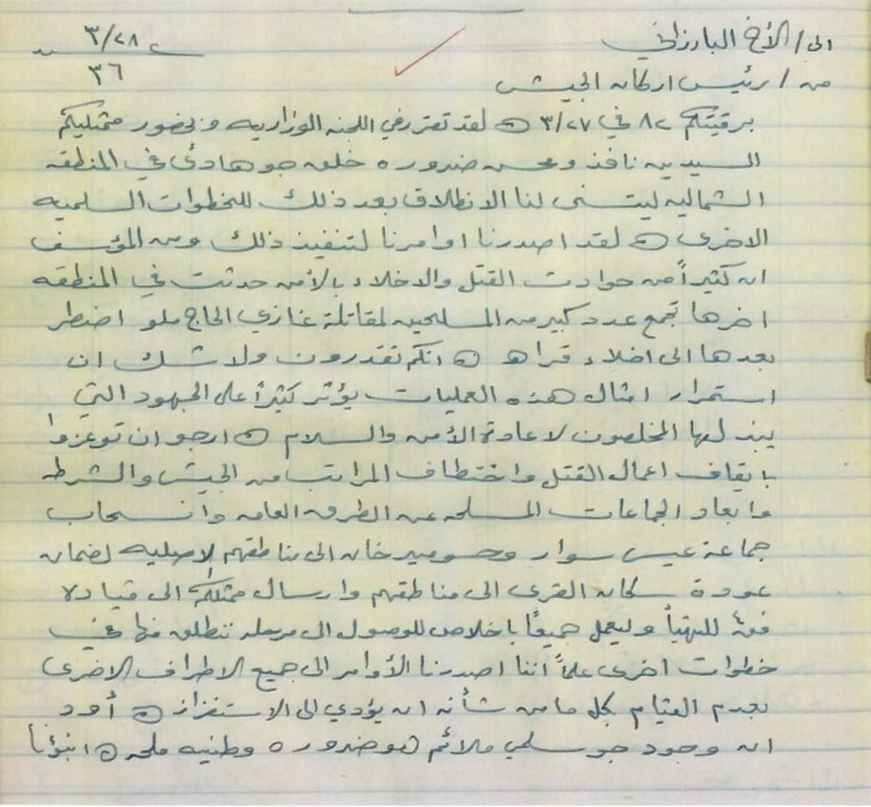 الى / الأخ البارزاني ٣/٢٨
من / رئيس اركان الجيش ٣٦
برقيتكم ٨٢ في ٣/٢٧ ه لقد تقرر في اللجنه الوزاريه وبحضور ممثليكم
السيدين نافذ ومحسن ضروره خلق جو هادئ في المنطقه
الشماليه ليتسنى لنا الانطلاق بعد ذلك للخطوات السلميه
الاخرى ه لقد اصدرنا اوامرنا لتنفيذ ذلك ومن المؤسف
ان كثيراً من حوادث القتل والاخلاء بالأمن حدثت في المنطقه
اخرها تجمع عدد كبير من المسلحين لمقاتلة غازي الحاج ملو اضطر
بعدها الى اخلاء قراه ه انكم تقدرون ولا شك ان
استمرار امثال هذه العمليات يؤثر كثيراً على الجهود التي
يبذلها المخلصون لاعادة الأمن والسلام ه ارجو ان توعزوا
بايقاف اعمال القتل واختطاف المراتب من الجيش والشرطه
وابعاد الجماعات المسلحه عن الطرق العامه وانسحاب
جماعة عيسى سوار وحسو ميرخان الى مناطقهم الاصليه لضمان
عودة سكان القرى الى مناطقهم وارسال ممثلكم الى قيادة
ف٤ للتهيأ وليعمل جميعاً باخلاص للوصول الى مرحله ننطلق منها في
خطوات اخرى علماً اننا اصدرنا الأوامر الى جميع الاطراف الاخرى
بعدم القيام بكل ما من شأنه ان يؤدي الى الاستفزاز ه أود
ان وجود جو سلمي ملائم هو ضروره وطنيه ملحه ه انبؤنا